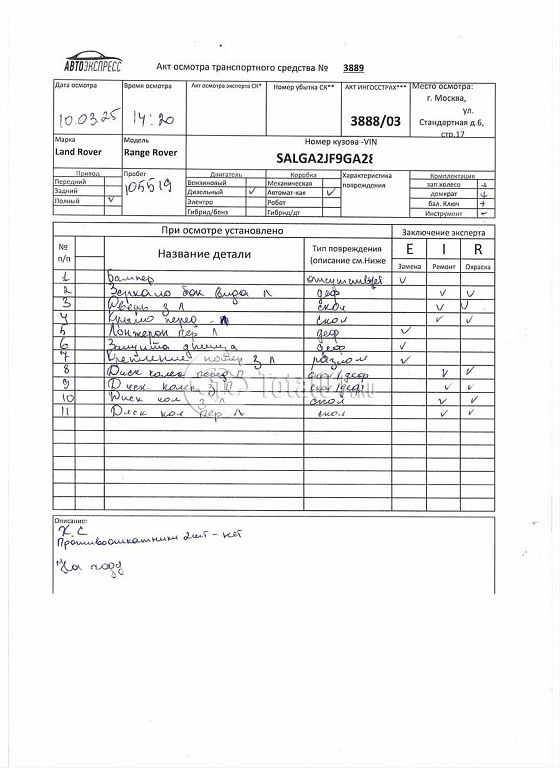 АВТОЭКСПРЕСС
Акт осмотра транспортного средства № 3889
Дата осмотра Время осмотра Акт осмотра эксперта СК* Номер убытка СК** АКТ ИНГОССТРАХ*** Место осмотра:
10.03.25 14:20 3888/03 г. Москва,
ул.
Стандартная д.6,
стр.17
Марка Модель Номер кузова -VIN
Land Rover Range Rover SALGA2JF9GA28
Привод Пробег Двигатель Коробка Характеристика повреждения Комплектация
Передний 105519 Бензиновый Механическая зап.колесо +
Задний Дизельный V Автомат-кая V домкрат +
Полный V Электро Робот бал. Ключ +
Гибрид/бенз Гибрид/дт Инструмент -
При осмотре установлено Заключение эксперта
№ п/п Название детали Тип повреждения (описание см.Ниже E I R
Замена Ремонт Окраска
1 Бампер отсутствует V
2 Зеркало бок вида л деф V V
3 Дверь з л скол V V
4 Крыло перед л скол V V
5 Лонжерон пер л деф V
6 Защита днища деф V
7 Крепление номер з л разлом V
8 Диск колес перед п скол/деф V V
9 Диск колес з п скол/деф V V
10 Диск кол з л скол V V
11 Диск кол пер л скол V V
TotalAuto.RU
Описание:
К.С
Противооткатники 2шт - нет
На ходу